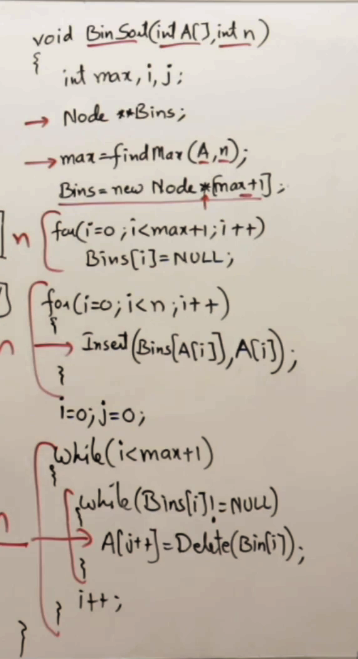 void BinSort(int A[], int n)
{
int max, i, j;
→ Node **Bins;
→ max=findMax(A,n);
Bins = new Node *[max+1];
n for(i=0; i<max+1; i++)
Bins[i]=NULL;
for(i=0; i<n; i++)
{
n → Insert(Bins[A[i]], A[i]);
}
i=0; j=0;
while(i<max+1)
{
while(Bins[i]!=NULL)
{
n → A[j++]=Delete(Bin[i]);
}
i++;
}
}